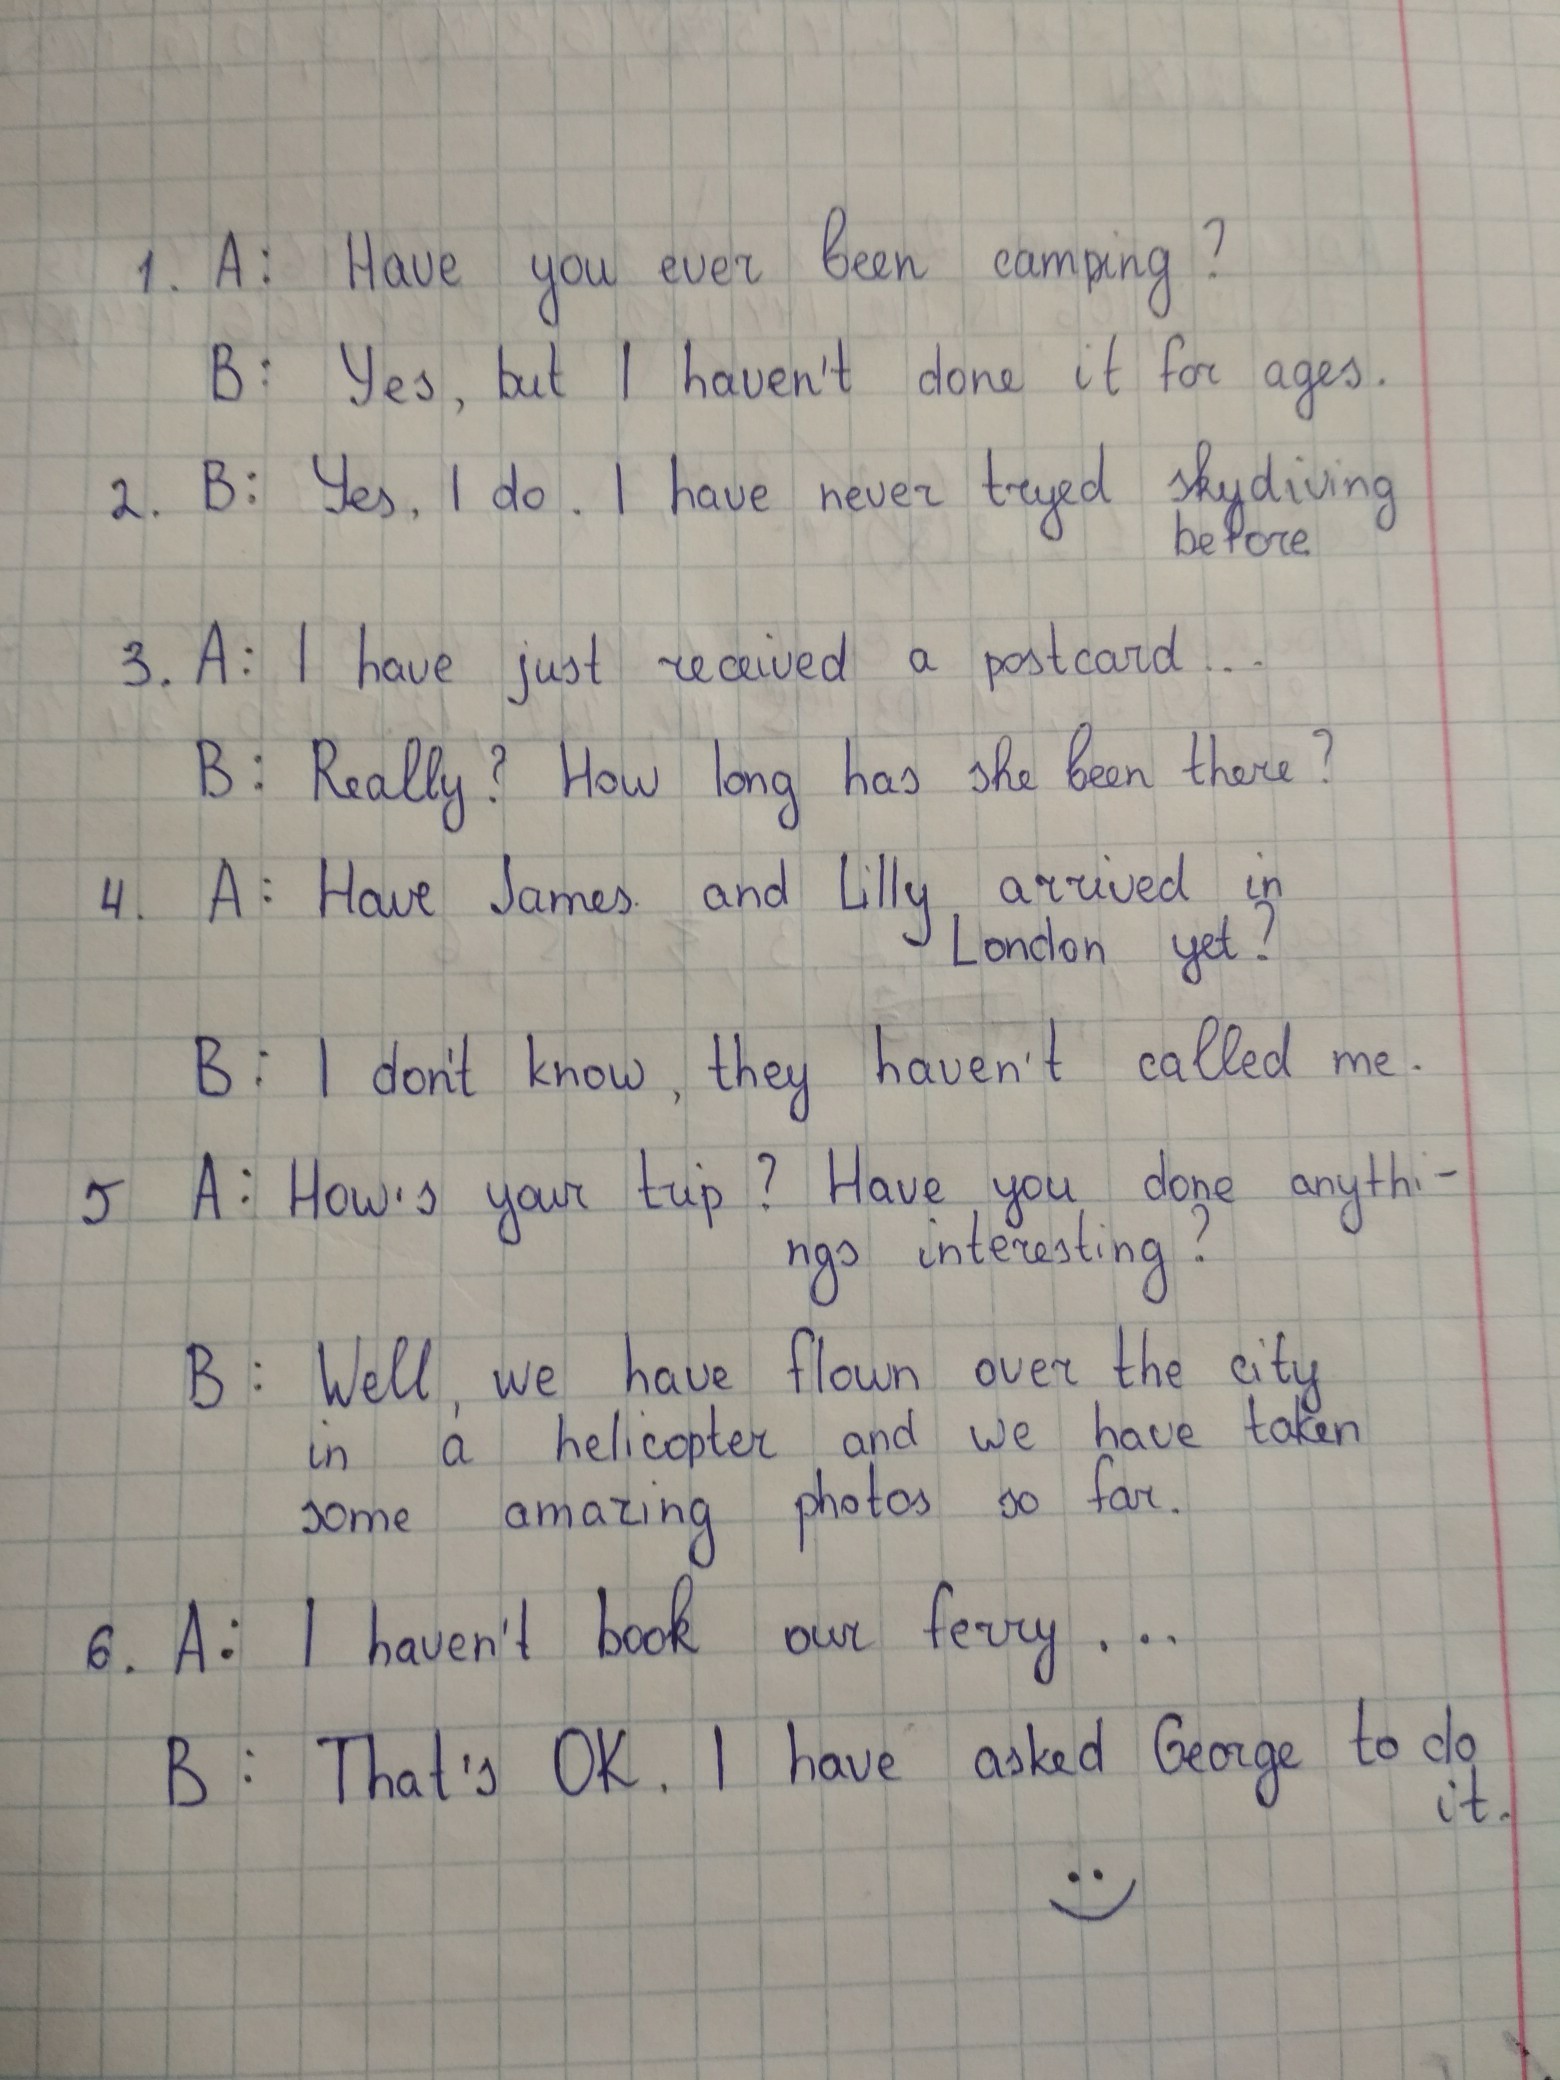 1. A: Have you ever been camping?
B: Yes, but I haven't done it for ages.
2. B: Yes, I do. I have never tryed skydiving
before
3. A: I have just received a postcard...
B: Really? How long has she been there?
4. A: Have James and Lilly arrived in
London yet?
B: I don't know, they haven't called me.
5 A: How's your trip? Have you done anythi-
ngs interesting?
B: Well, we have flown over the city
in a helicopter and we have taken
some amazing photos so far.
6. A: I haven't book our ferry...
B: That's OK. I have asked George to do
it.